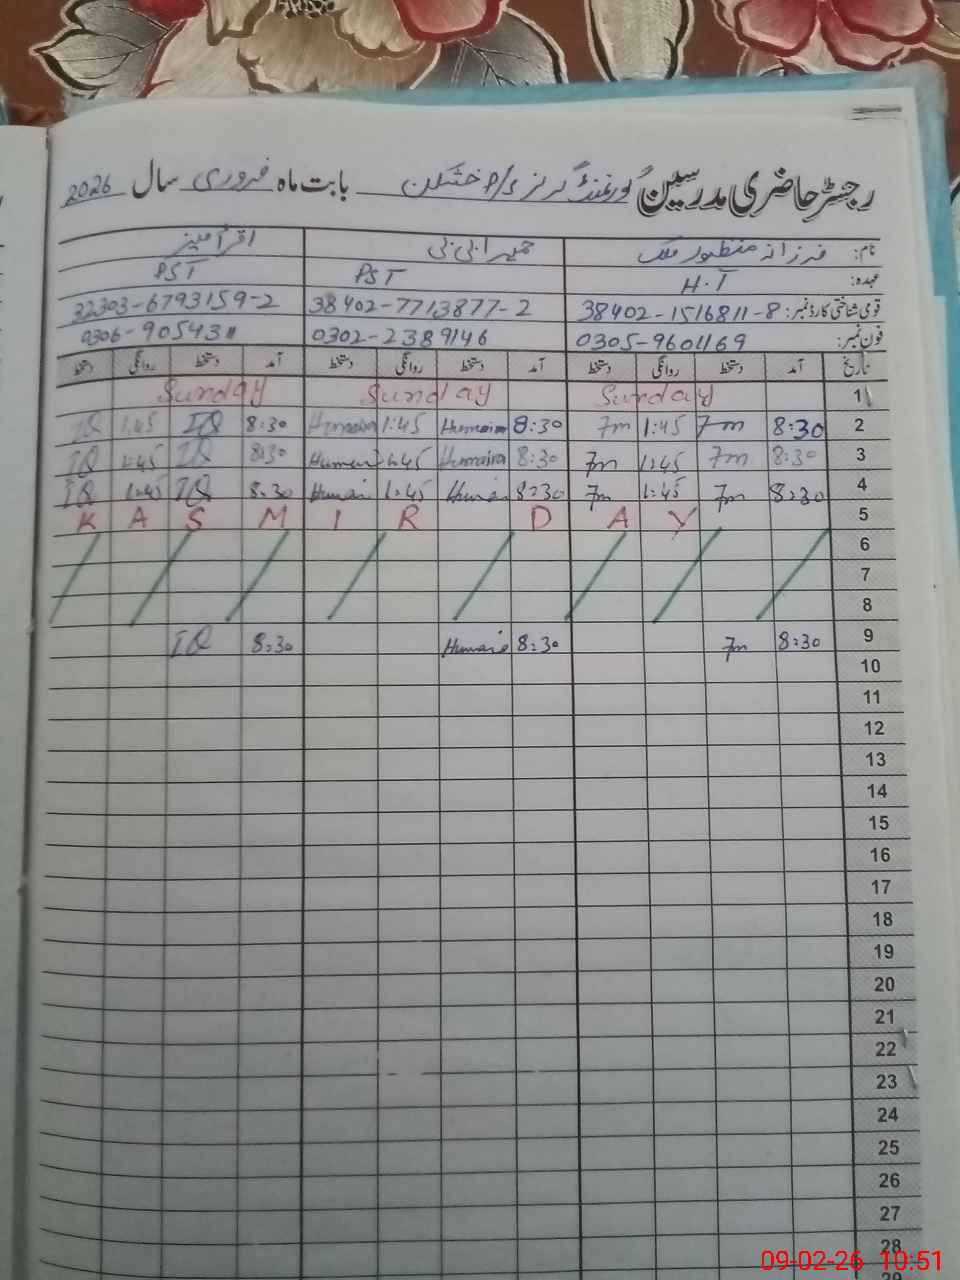 رجسٹر حاضری مدرسین گورنمنٹ گرلز P/S بابت ماہ فروری سال 2026
نام: فرزانہ منظور ملک حمیرا بی بی اقرا
عہدہ: H.T PST PST
قومی شناختی کارڈ نمبر: 38402-1516811-8 38402-7713877-2 32303-6793159-2
فون نمبر: 0305-9601169 0302-2389146 0306-905431
تاریخ آمد دستخط روانگی دستخط آمد دستخط روانگی دستخط آمد دستخط روانگی دستخط
1 Sunday Sunday Sunday
2 8:30 7m 1:45 7m 8:30 Humaira 1:45 Humaira 8:30 IQ 1:45 IQ
3 8:30 7m 1:45 7m 8:30 Humaira 1:45 Humaira 8:30 IQ 1:45 IQ
4 8:30 7m 1:45 7m 8:30 Humaira 1:45 Humaira 8:30 IQ 1:45 IQ
K A S M I R D A Y 5
6
7
8
9 8:30 7m 8:30 Humaira 8:30 IQ
10
11
12
13
14
15
16
17
18
19
20
21
22
23
24
25
26
27
28
29
09-02-26 10:51